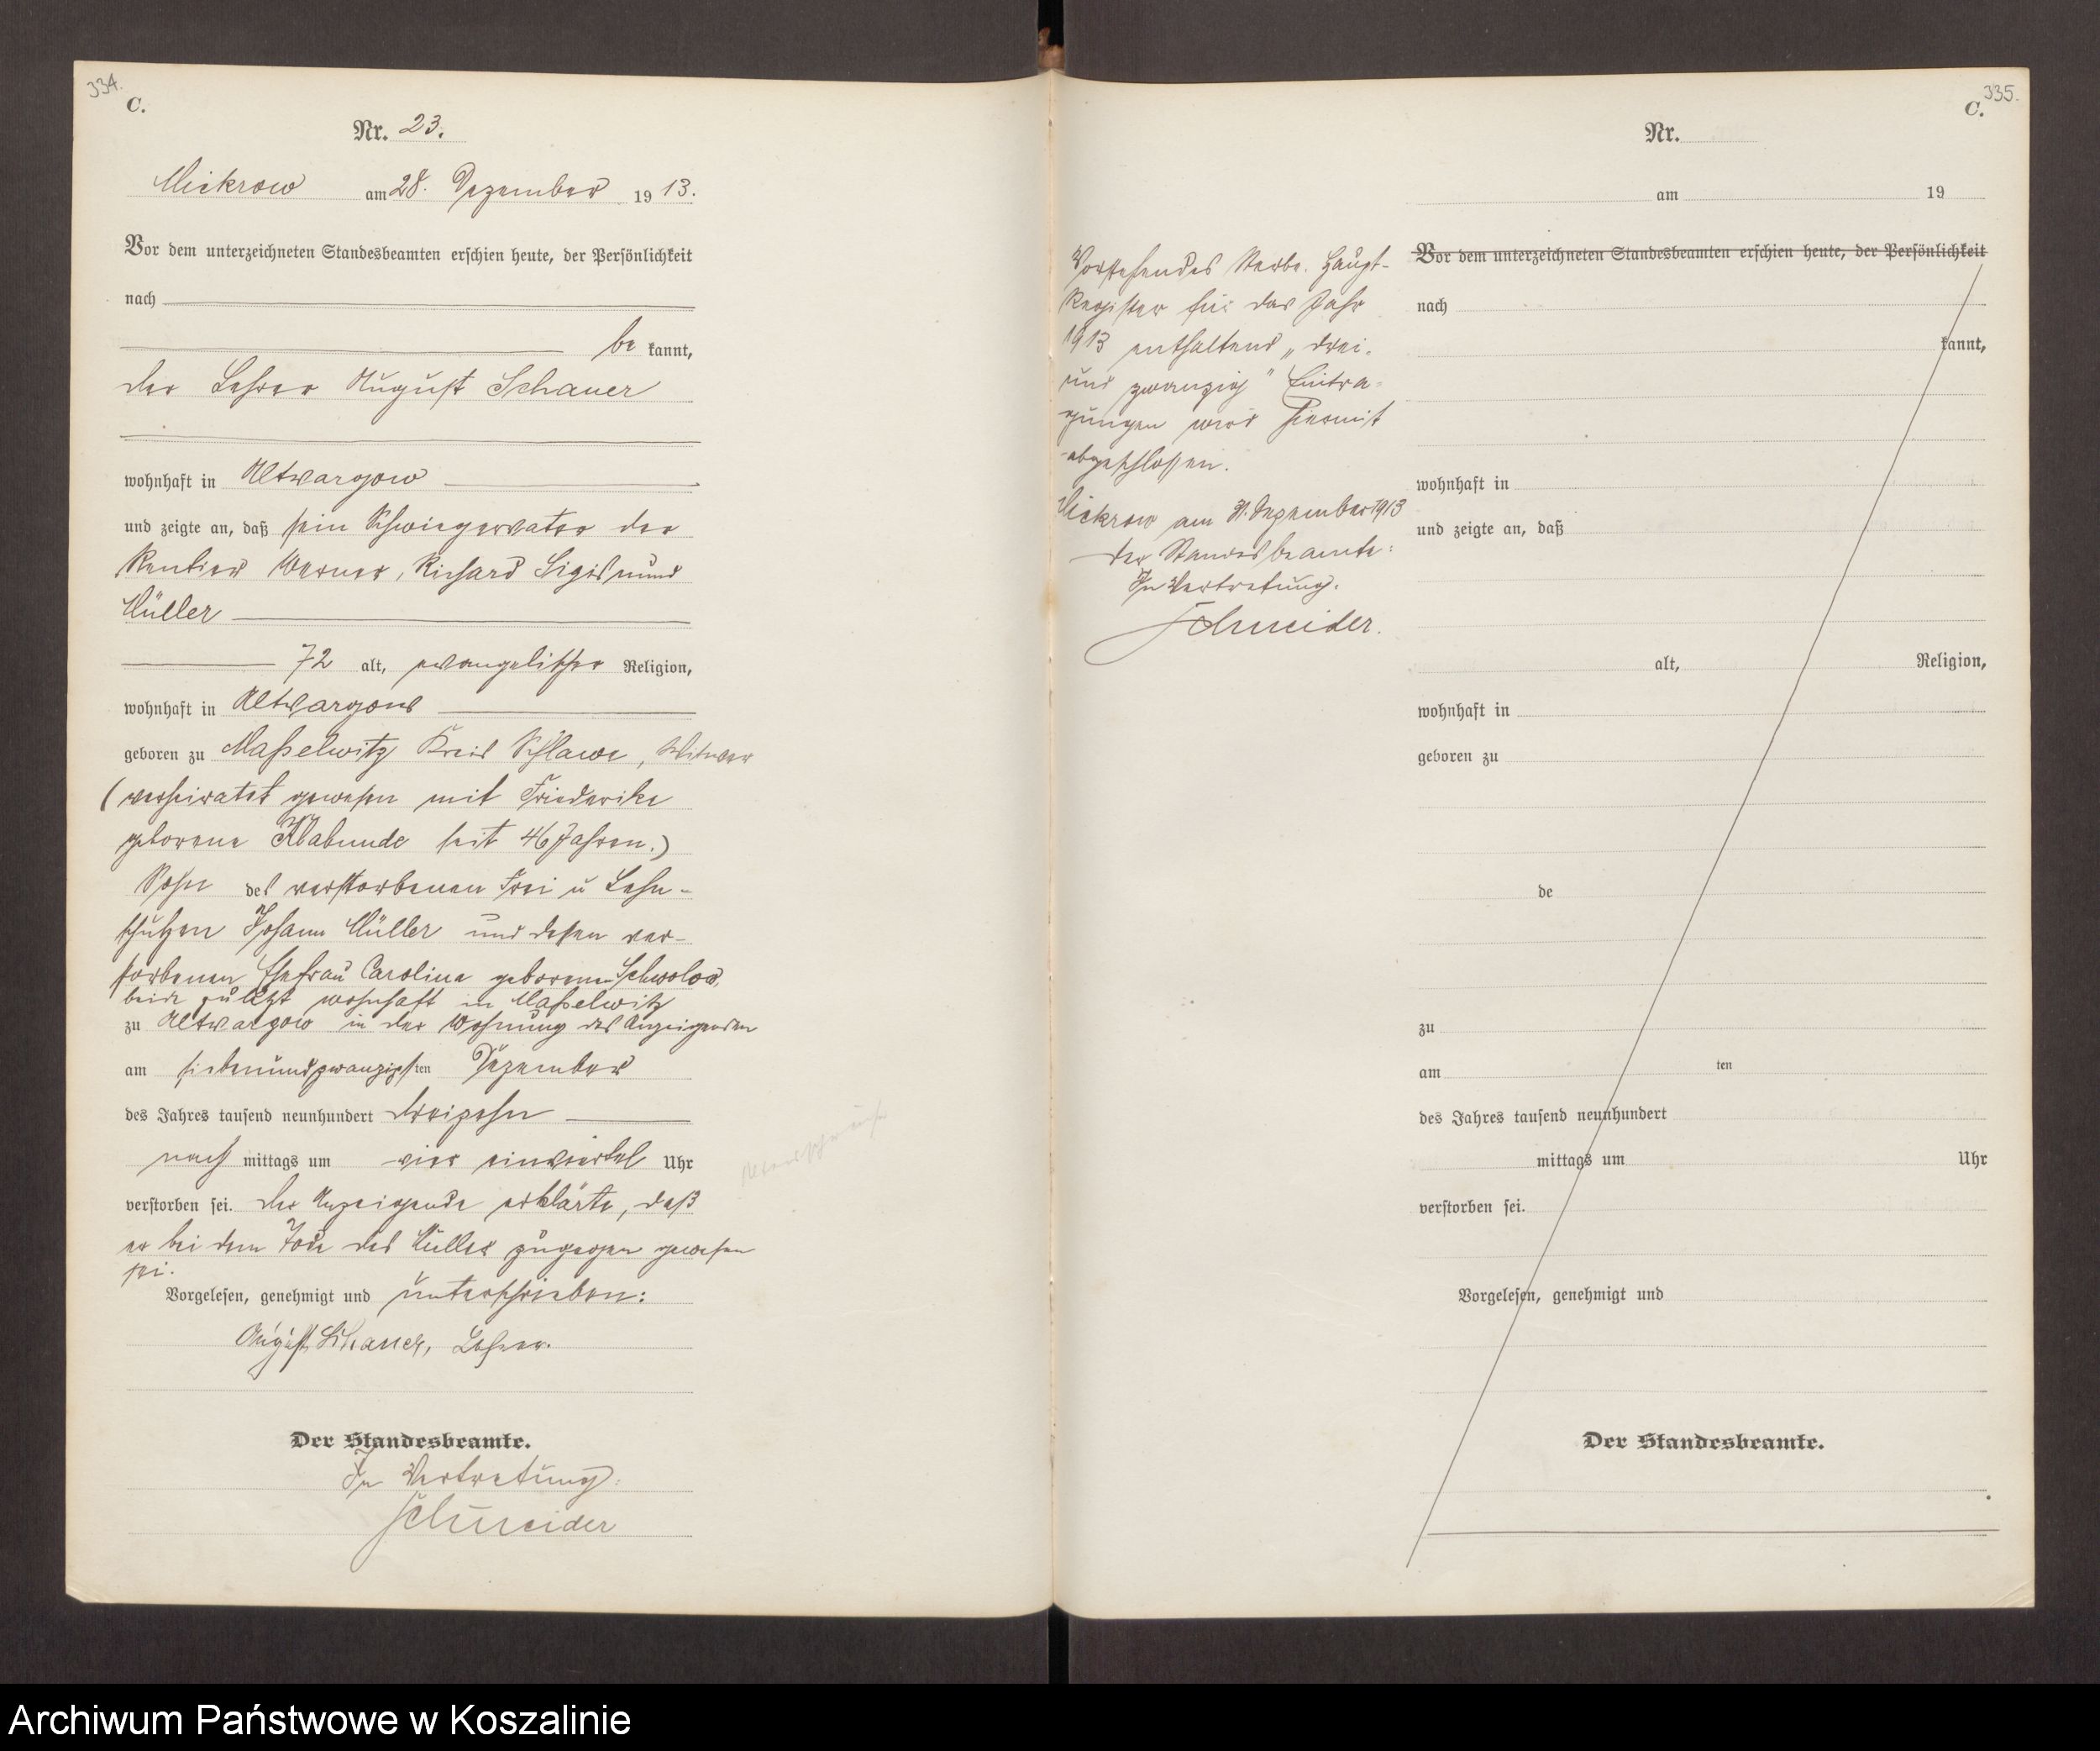 334.
C.
Nr. 23.
Mickrow am 28. Dezember 1913.
Vor dem unterzeichneten Standesbeamten erschien heute, der Persönlichkeit
nach
be kannt,
der Lehrer August Schauer
wohnhaft in Altwargow
und zeigte an, daß sein Schwiegervater der
Rentier Werner, Richard Sigismund
Müller
72 alt, evangelischer Religion,
wohnhaft in Altwargow
geboren zu Maßelwitz Kreis Schlawe, Witwer
(verheiratet gewesen mit Friederike
geborene Klabunde seit 46 Jahren.)
Sohn des verstorbenen Frei u Lehn-
schulzen Johann Müller und dessen ver-
storbenen Ehefrau Caroline geborenen
beide zuletzt wohnhaft in Maßelwitz
zu Altwargow in der Wohnung des Anzeigenden
am siebenundzwanzigsten Dezember
des Jahres tausend neunhundert dreizehn
nach mittags um vier einviertel Uhr
verstorben sei. Der Anzeigende erklärte, daß
er bei dem Tode des Müller zugegen gewesen
sei.
Vorgelesen, genehmigt und unterschrieben:
August Schauer, Lehrer.
Der Standesbeamte.
In Vertretung:
Schneider
335.
C.
Nr.
am 19
Vor dem unterzeichneten Standesbeamten erschien heute, der Persönlichkeit
nach
kannt,
wohnhaft in
und zeigte an, daß
alt, Religion,
wohnhaft in
geboren zu
de
zu
am ten
des Jahres tausend neunhundert
mittags um Uhr
verstorben sei.
Vorgelesen, genehmigt und
Der Standesbeamte.
Vorstehendes Sterbe. Haupt-
Register für das Jahr
1913 enthaltend „drei-
und zwanzig" Eintra-
gungen wird hiermit
abgeschlossen.
Mickrow am 31. Dezember 1913
Der Standesbeamte:
In Vertretung.
Schneider.
Archiwum Państwowe w Koszalinie